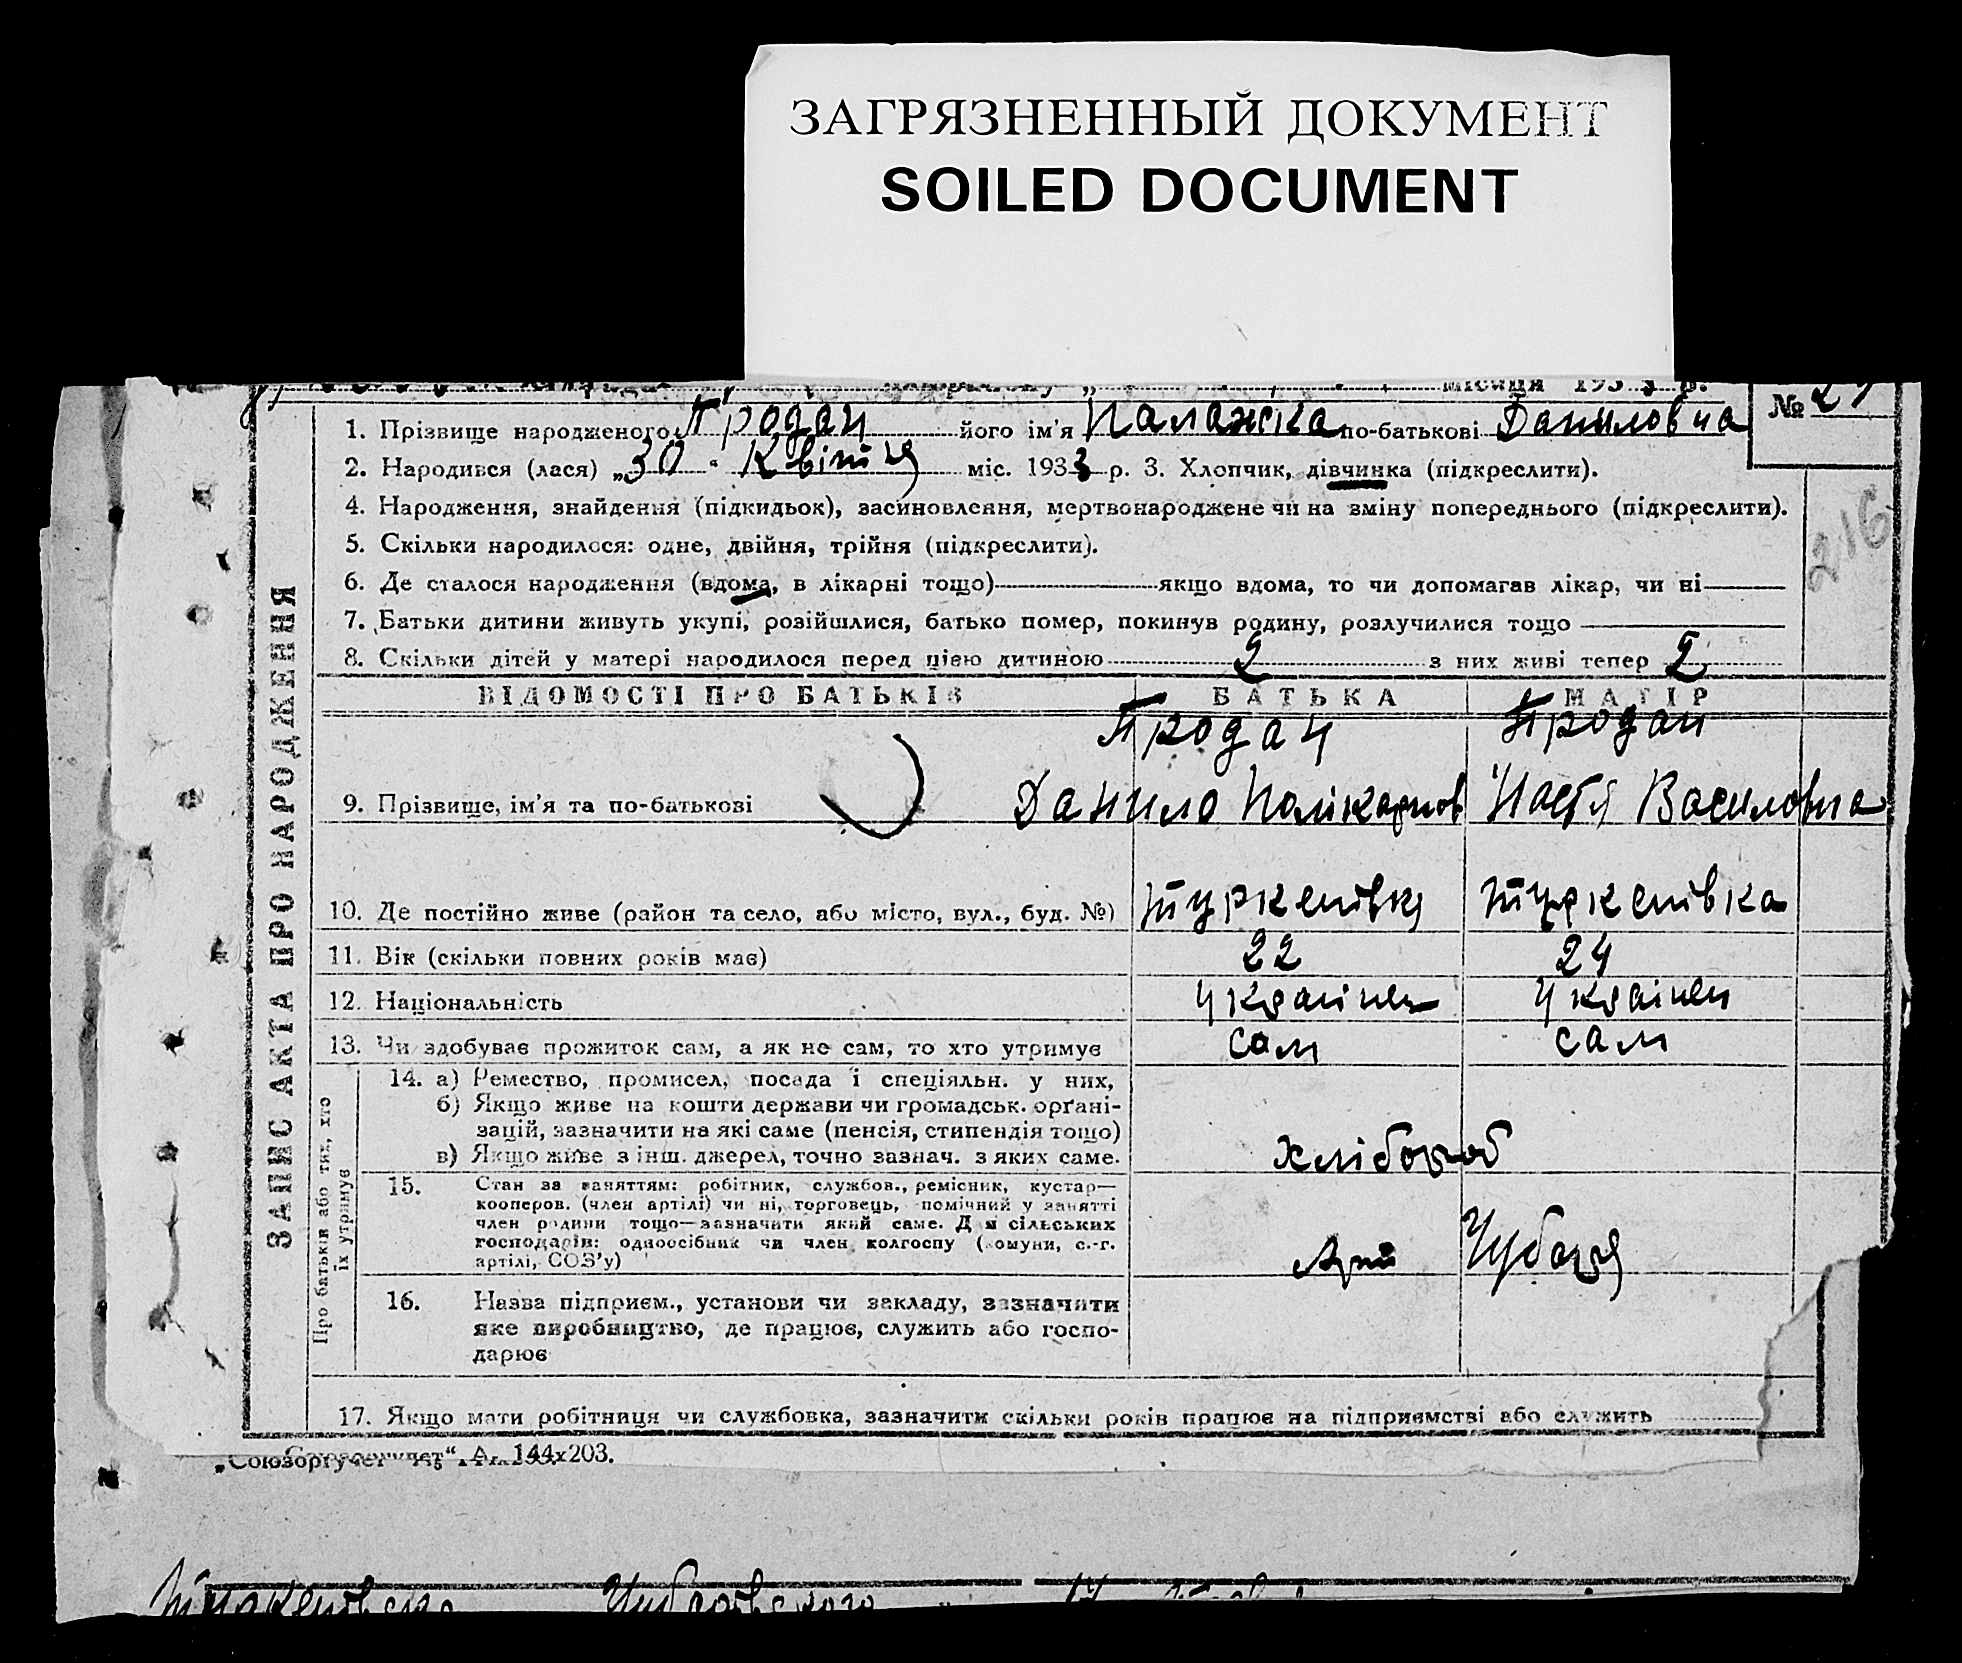 ЗАГРЯЗНЕННЫЙ ДОКУМЕНТ
SOILED DOCUMENT
місяця 193 3 р.
№
1. Прізвище народженого Продан його ім'я Палажка по-батькові Даниловна
2. Народився (лася) „30" Квітня міс. 1933 р. 3. Хлопчик, дівчинка (підкреслити).
4. Народження, знайдення (підкидьок), засиновлення, мертвонароджене чи на зміну попереднього (підкреслити).
216
5. Скільки народилося: одне, двійня, трійня (підкреслити).
6. Де сталося народження (вдома, в лікарні тощо) якщо вдома, то чи допомагав лікар, чи ні
7. Батьки дитини живуть укупі, розійшлися, батько помер, покинув родину, розлучилися тощо
8. Скільки дітей у матері народилося перед цією дитиною 2 з них живі тепер 2
ЗАПИС АКТА ПРО НАРОДЖЕННЯ
ВІДОМОСТІ ПРО БАТЬКІВ БАТЬКА МАТІР
Продан Продан
9. Прізвище, ім'я та по-батькові Данило Полікарпов Настя Василовна
10. Де постійно живе (район та село, або місто, вул., буд. №) Туркенівка Туркенівка
11. Вік (скільки повних років має) 22 24
12. Національність Українец Українец
13. Чи здобуває прожиток сам, а як не сам, то хто утримує сам сам
Про батьків або тих, хто їх утримує
14. а) Ремество, промисел, посада і спеціяльн. у них,
б) Якщо живе на кошти держави чи громадськ. орґані-
зацій, зазначити на які саме (пенсія, стипендія тощо)
в) Якщо живе з інш. джерел, точно зазнач. з яких саме. хлібороб
15. Стан за заняттям: робітник, службов., ремісник, кустар—
кооперов. (член артілі) чи ні, торговець, помічний у занятті
член родини тощо—зазначити який саме. Для сільських
господарів: одноосібник чи член колгоспу (комуни, с.-г.
артілі, СОЗ'у) Арт Чубаря
16. Назва підприєм., установи чи закладу, зазначити
яке виробництво, де працює, служить або госпо-
дарює
17. Якщо мати робітниця чи службовка, зазначити скільки років працює на підприємстві або служить
„Союзоргучет“ А₅ 144х203.